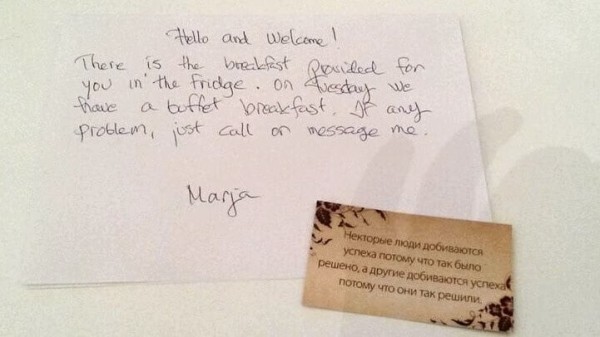 Hello and Welcome!
There is the breakfast provided for
you in the fridge. On Tuesday we
have a buffet breakfast. If any
problem, just call or message me.
Marja
Некоторые люди добиваются
успеха потому что так было
решено, а другие добиваются успеха
потому что они так решили.